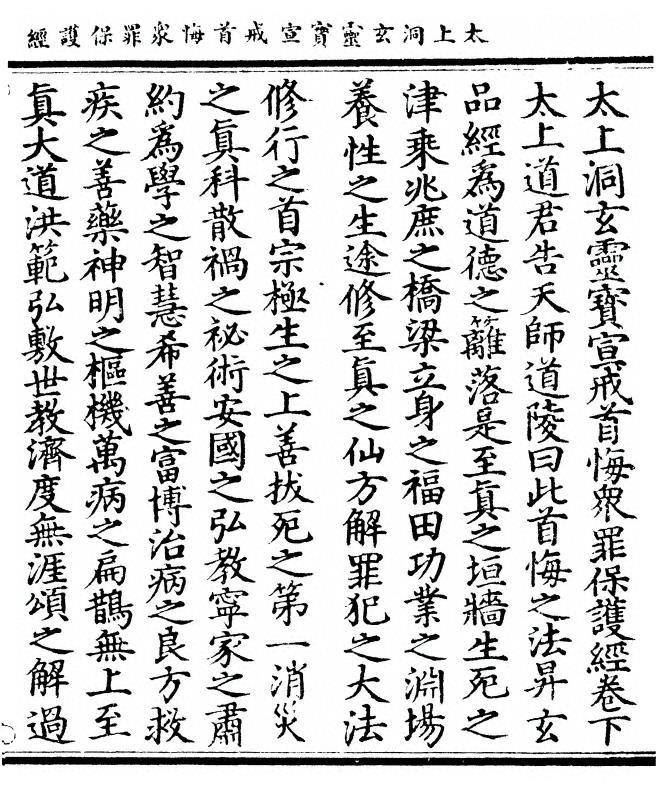 太上洞玄靈寶宣戒首悔衆罪保護經
太上洞玄靈寶宣戒首悔衆罪保護經卷下
太上道君告天師道陵曰此首悔之法昇玄
品經爲道德之籬落是至眞之垣牆生死之
津乗兆庶之橋梁立身之福田功業之淵場
養性之生途修至眞之仙方解罪犯之大法
修行之首宗極生之上善拔死之第一消災
之眞科散禍之祕術安國之弘教寧家之肅
約爲學之智慧希善之富博治病之良方救
疾之善藥神明之樞機萬病之扁鵲無上至
眞大道洪範弘敷世教濟度無涯頌之解過